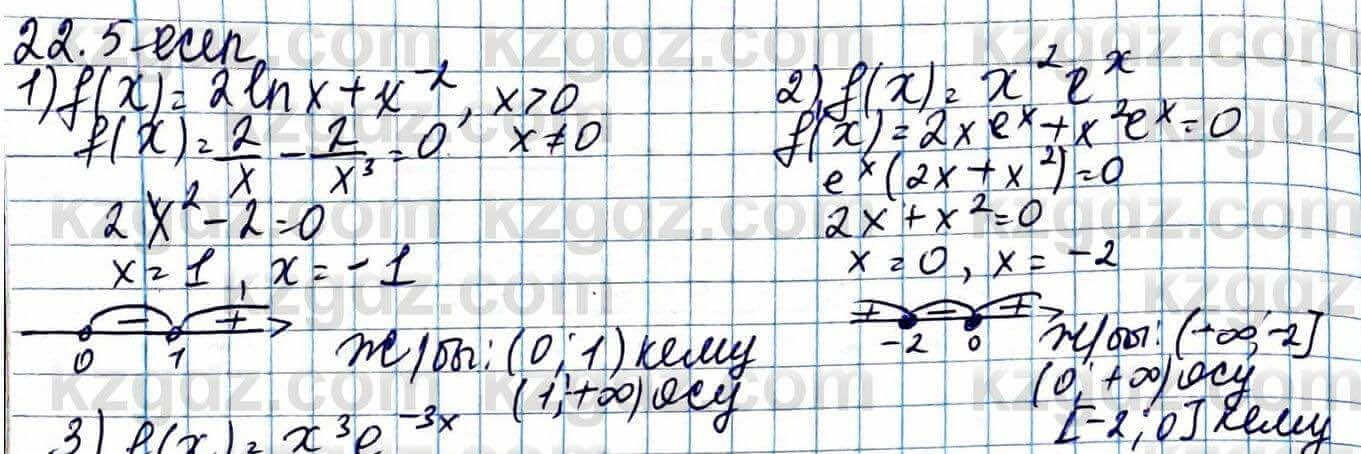 22.5-есеп
1) f(x) = 2 ln x + x⁻², x > 0
f'(x) = 2/x - 2/x³ = 0 x ≠ 0
2x² - 2 = 0
x = 1, x = -1
- +
0 1
Ж/бы: (0; 1) кему
(1; +∞) өсу
2) f(x) = x² eˣ
f'(x) = 2x eˣ + x² eˣ = 0
eˣ (2x + x²) = 0
2x + x² = 0
x = 0, x = -2
+ - +
-2 0
Ж/бы: (-∞; -2]
(0; +∞) өсу
[-2; 0] кему
3) f(x) = x³ e⁻³ˣ
kzgdz.com